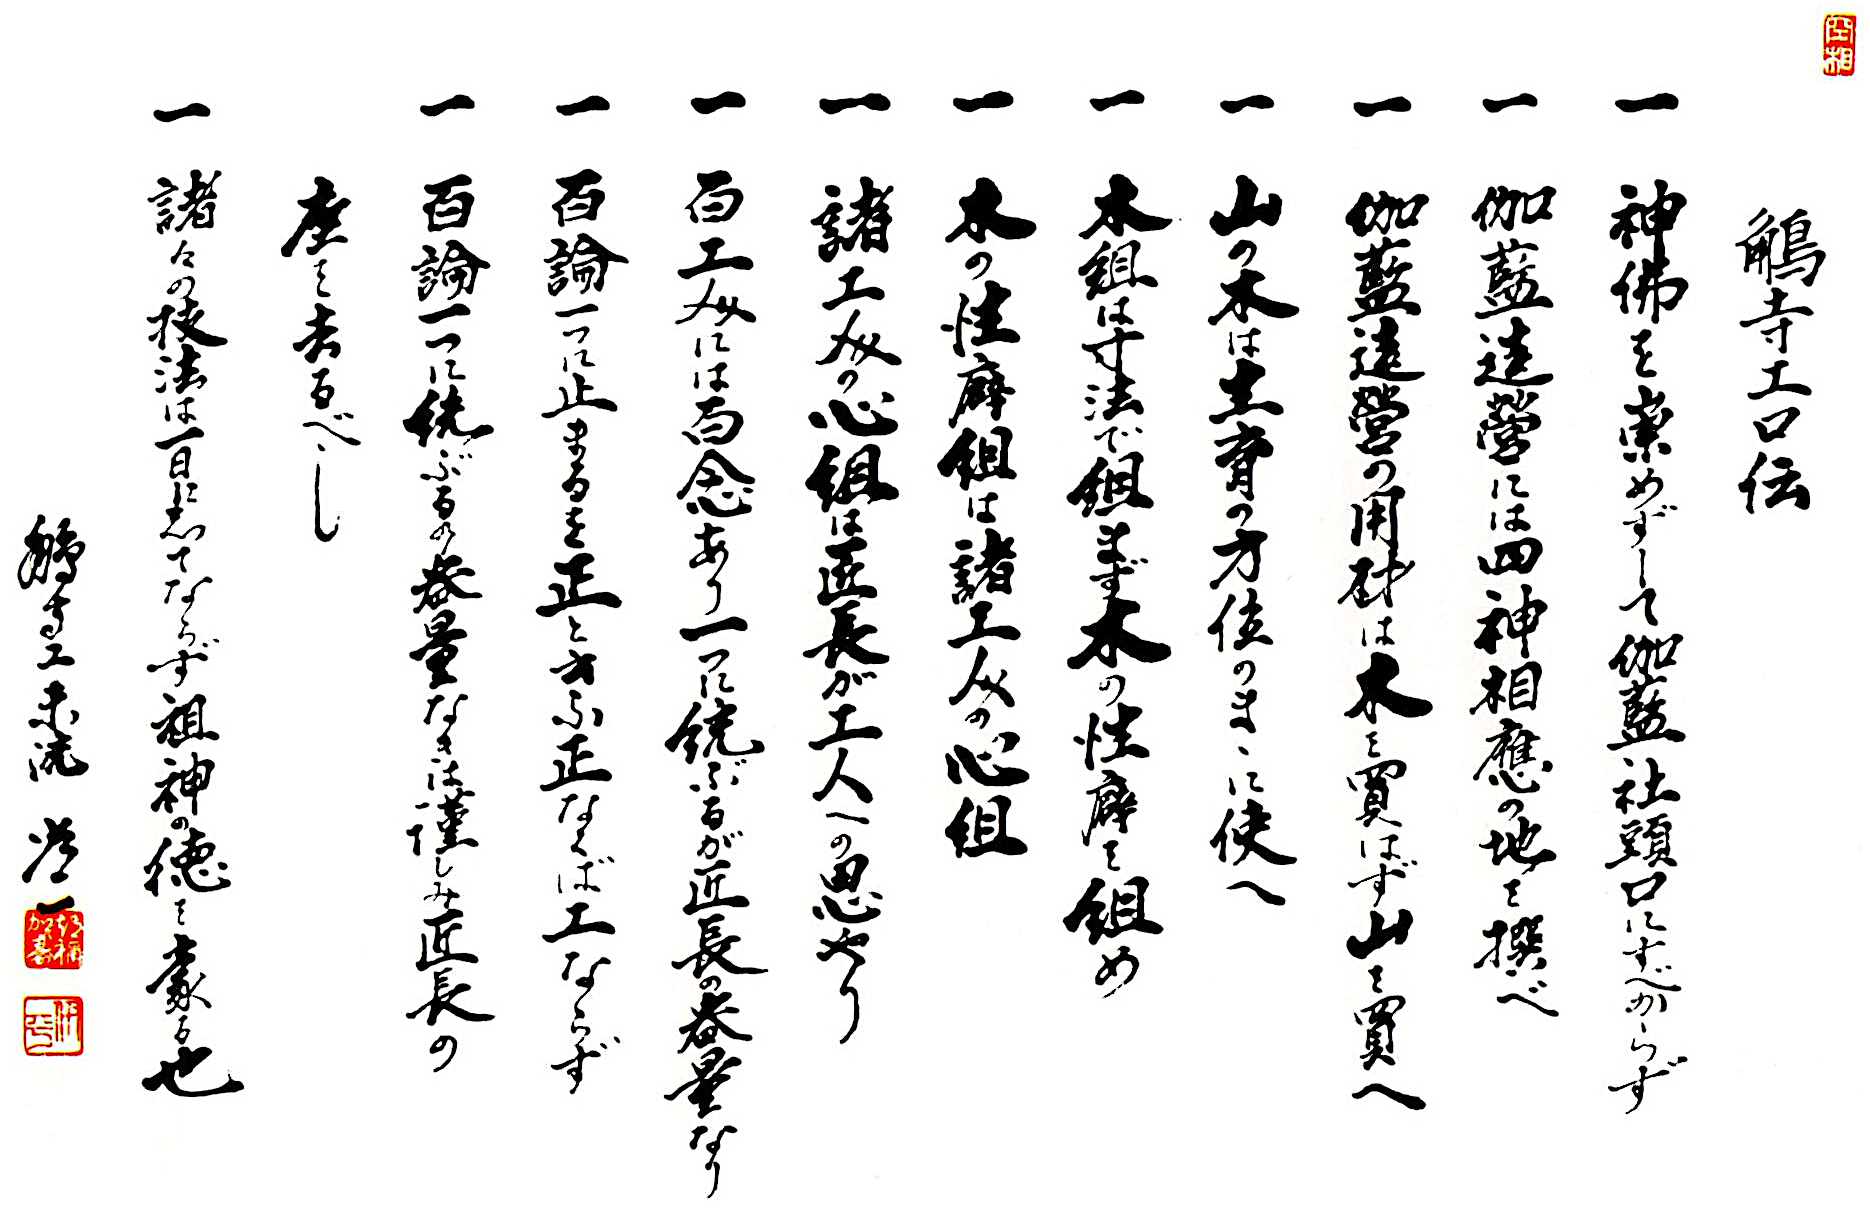 空相
鵤寺工口伝
一 神佛を崇めずして伽藍社頭口にすべからず
一 伽藍造營には四神相應の地を撰べ
一 伽藍造營の用材は木を買はず山を買へ
一 山の木は生育の方位のまゝに使へ
一 木組は寸法で組まず木の性癖を組め
一 木の性癖組は諸工人の心組
一 諸工人の心組は匠長が工人への思やり
一 百工人には百念あり一つに統ぶるが匠長の器量なり
一 百論一つに止まるを正と云ふ正なくば工ならず
一 百論一つに統ぶるの器量なきは謹しみ匠長の
座を去るべし
一 諸々の技法は一日にしてならず祖神の徳を蒙る也
鵤寺工末流 常一